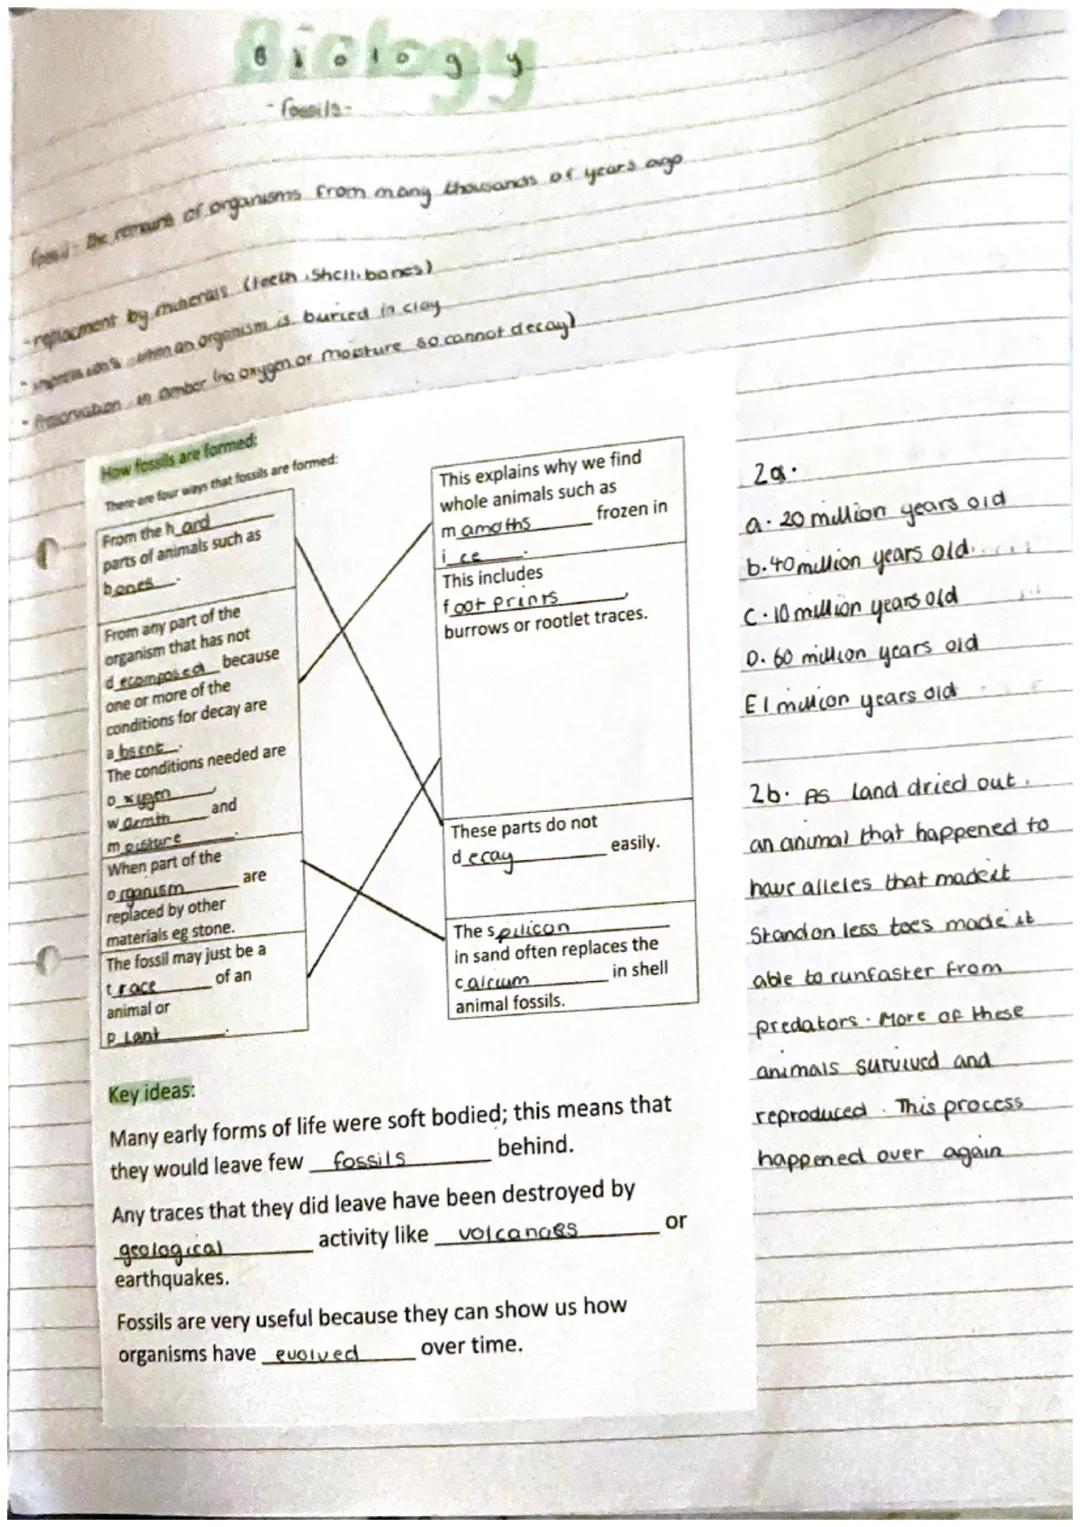 Biology
- fossils -
fossil - the remains of organisms from many thousands of years ago
- replacment by minerals (teeth, shell, bones)
- impressions - when an organism is buried in clay
- Preservation in amber (no oxygen or moisture so cannot decay)
How fossils are formed:
There are four ways that fossils are formed:
From the hard
parts of animals such as
bones.
From any part of the
organism that has not
decomposed because
one or more of the
conditions for decay are
absent.
The conditions needed are
oxygen,
warmth and
moisture.
When part of the
organism are
replaced by other
materials eg stone.
The fossil may just be a
trace of an
animal or
plant.
This explains why we find
whole animals such as
mamoths frozen in
ice.
This includes
foot prints,
burrows or rootlet traces.
These parts do not
decay easily.
The spilicon
in sand often replaces the
calcium in shell
animal fossils.
Key ideas:
Many early forms of life were soft bodied; this means that
they would leave few fossils behind.
Any traces that they did leave have been destroyed by
geological activity like volcanoes or
earthquakes.
Fossils are very useful because they can show us how
organisms have evolved over time.
2a.
a. 20 million years old
b. 40 million years old
C. 10 million years old
D. 60 million years old
E 1 million years old
2b. As land dried out.
an animal that happened to
have alleles that made it
Stand on less toes made it
able to run faster from
predators. More of these
animals survived and
reproduced. This process
happened over again